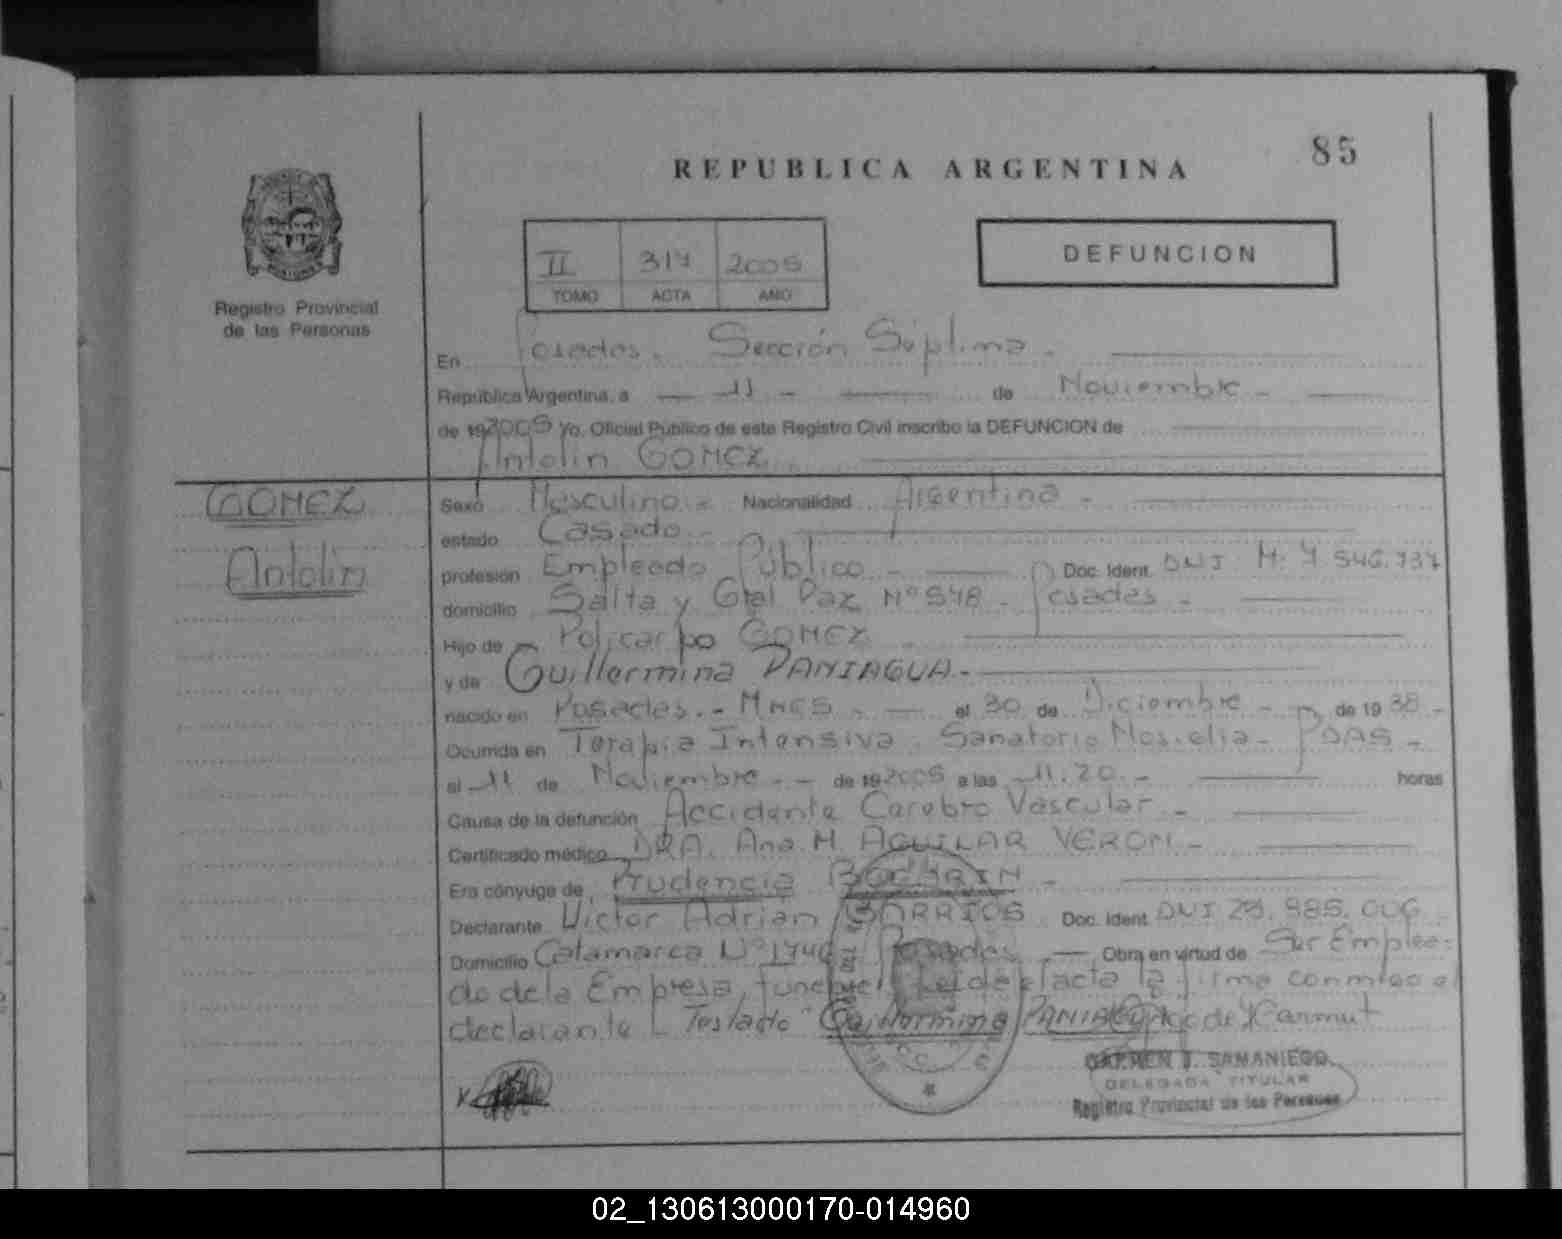 85
REPUBLICA ARGENTINA
Registro Provincial
de las Personas
II 317 2005
TOMO ACTA AÑO
DEFUNCION
En Posadas. Sección Séptima.
República Argentina, a 11 de Noviembre
de 19 2005 Yo, Oficial Público de este Registro Civil inscribo la DEFUNCION de
Antolin GOMEZ
GOMEZ
Antolin
Sexo Masculino Nacionalidad Argentina
estado Casado
profesión Empleado Público Doc. Ident. DNI M: 7 546.737
domicilio Salta y Gral Paz Nº 548 - Posadas
Hijo de Policarpo GOMEZ
y de Guillermina PANIAGUA
nacido en Posadas. - Mnes el 30 de Diciembre de 19 38
Ocurrida en Terapia Intensiva. Sanatorio - Pdas
el 11 de Noviembre de 19 2005 a las 11.20. horas
Causa de la defunción Accidente Cerebro Vascular
Certificado médico DRA. Ana M. AGUILAR VERON
Era cónyuge de Prudencia
Declarante Victor Adrian BARRIOS Doc. Ident. DNI 29.985.006
Domicilio Catamarca Nº 1746 Posadas Obra en virtud de Ser Emplea-
do de la Empresa funebre. Leida el acta la firma conmigo el
declarante. Testado "Guillermina PANIAGUA"
CARMEN J. SAMANIEGO
DELEGADA TITULAR
Registro Provincial de las Personas
02_130613000170-014960